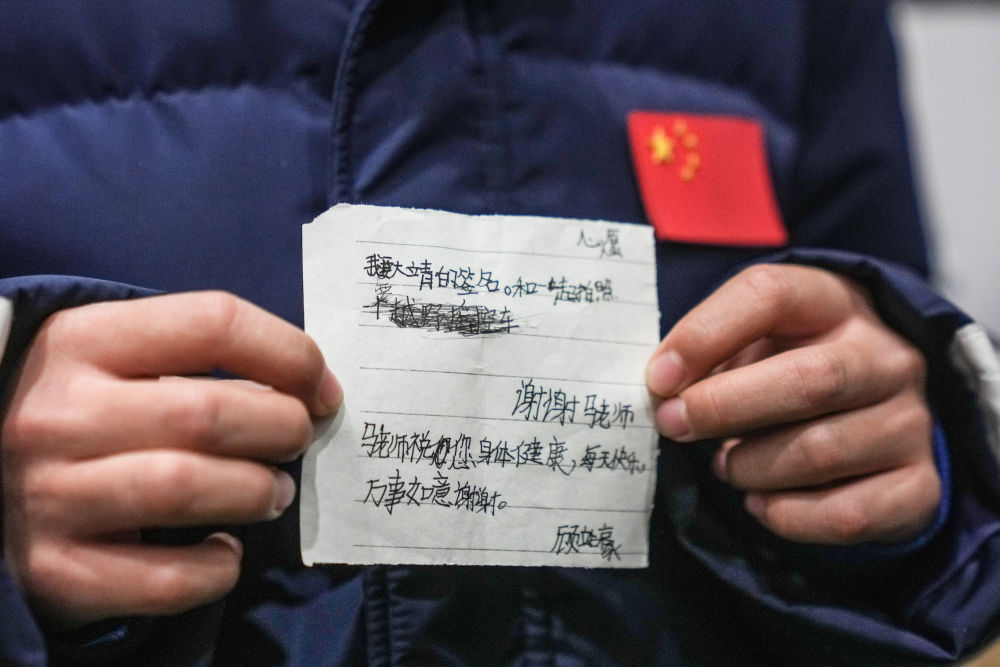 心愿
我要大靖的签名。和一起拍照
谢谢马老师
马老师祝您身体健康，每天快乐。
万事如意谢谢。